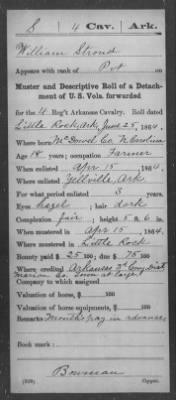 S 4 Cav. Ark.
William Stroud
Appears with rank of Pvt on
Muster and Descriptive Roll of a Detachment of U. S. Vols. forwarded
for the 4 Reg't Arkansas Cavalry. Roll dated
Little Rock, Ark, June 25, 1864.
Where born McDowel Co N Carolina
Age 18 years; occupation Farmer
When enlisted Apr 15, 1864.
Where enlisted Yellville Ark
For what period enlisted 3 years.
Eyes hazel; hair dark
Complexion fair; height 5 ft. 6 in.
When mustered in Apr 15, 1864.
Where mustered in Little Rock
Bounty paid $ 25 100; due $ 75 100
Where credited Arkansas 2d Cong Dist
Marion Co. Town at large
Company to which assigned
Valuation of horse, $ 100
Valuation of horse equipments, $ 100
Remarks Months pay in advance
Book mark:
Bowman
(339) Copyist.